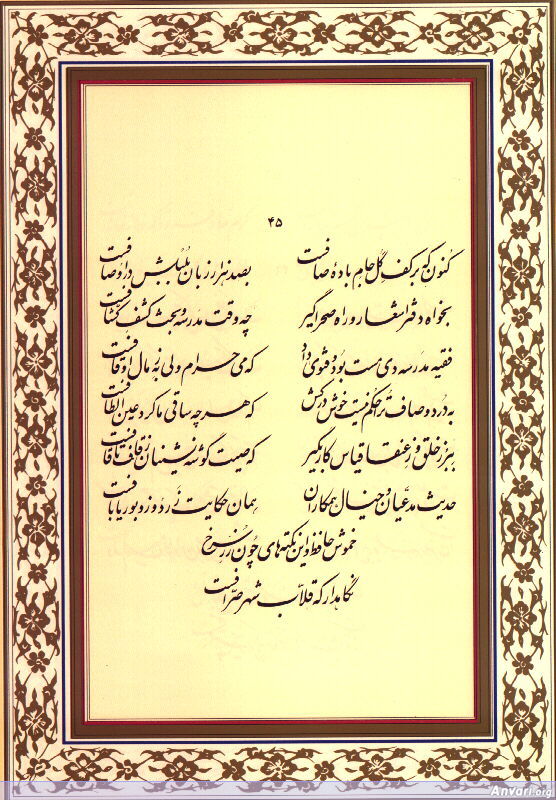 ۴۵
کنون که بر کف گل جام باده صافست بصد هزار زبان بلبلش در اوصافست
بخواه دفتر اشعار و راه صحرا گیر چه وقت مدرسه و بحث کشف کشافست
فقیه مدرسه دی مست بود و فتوی داد که می حرام ولی به ز مال اوقافست
به درد و صاف ترا حکم نیست خوش درکش که هر چه ساقی ما کرد عین الطافست
ببر ز خلق و ز عنقا قیاس کار بگیر که صیت گوشه نشینان ز قاف تا قافست
حدیث مدعیان و خیال همکاران همان حکایت زردوز و بوریابافست
خموش حافظ و این نکته های چون زر سرخ
نگاهدار که قلاب شهر صرافست
Anvari.org